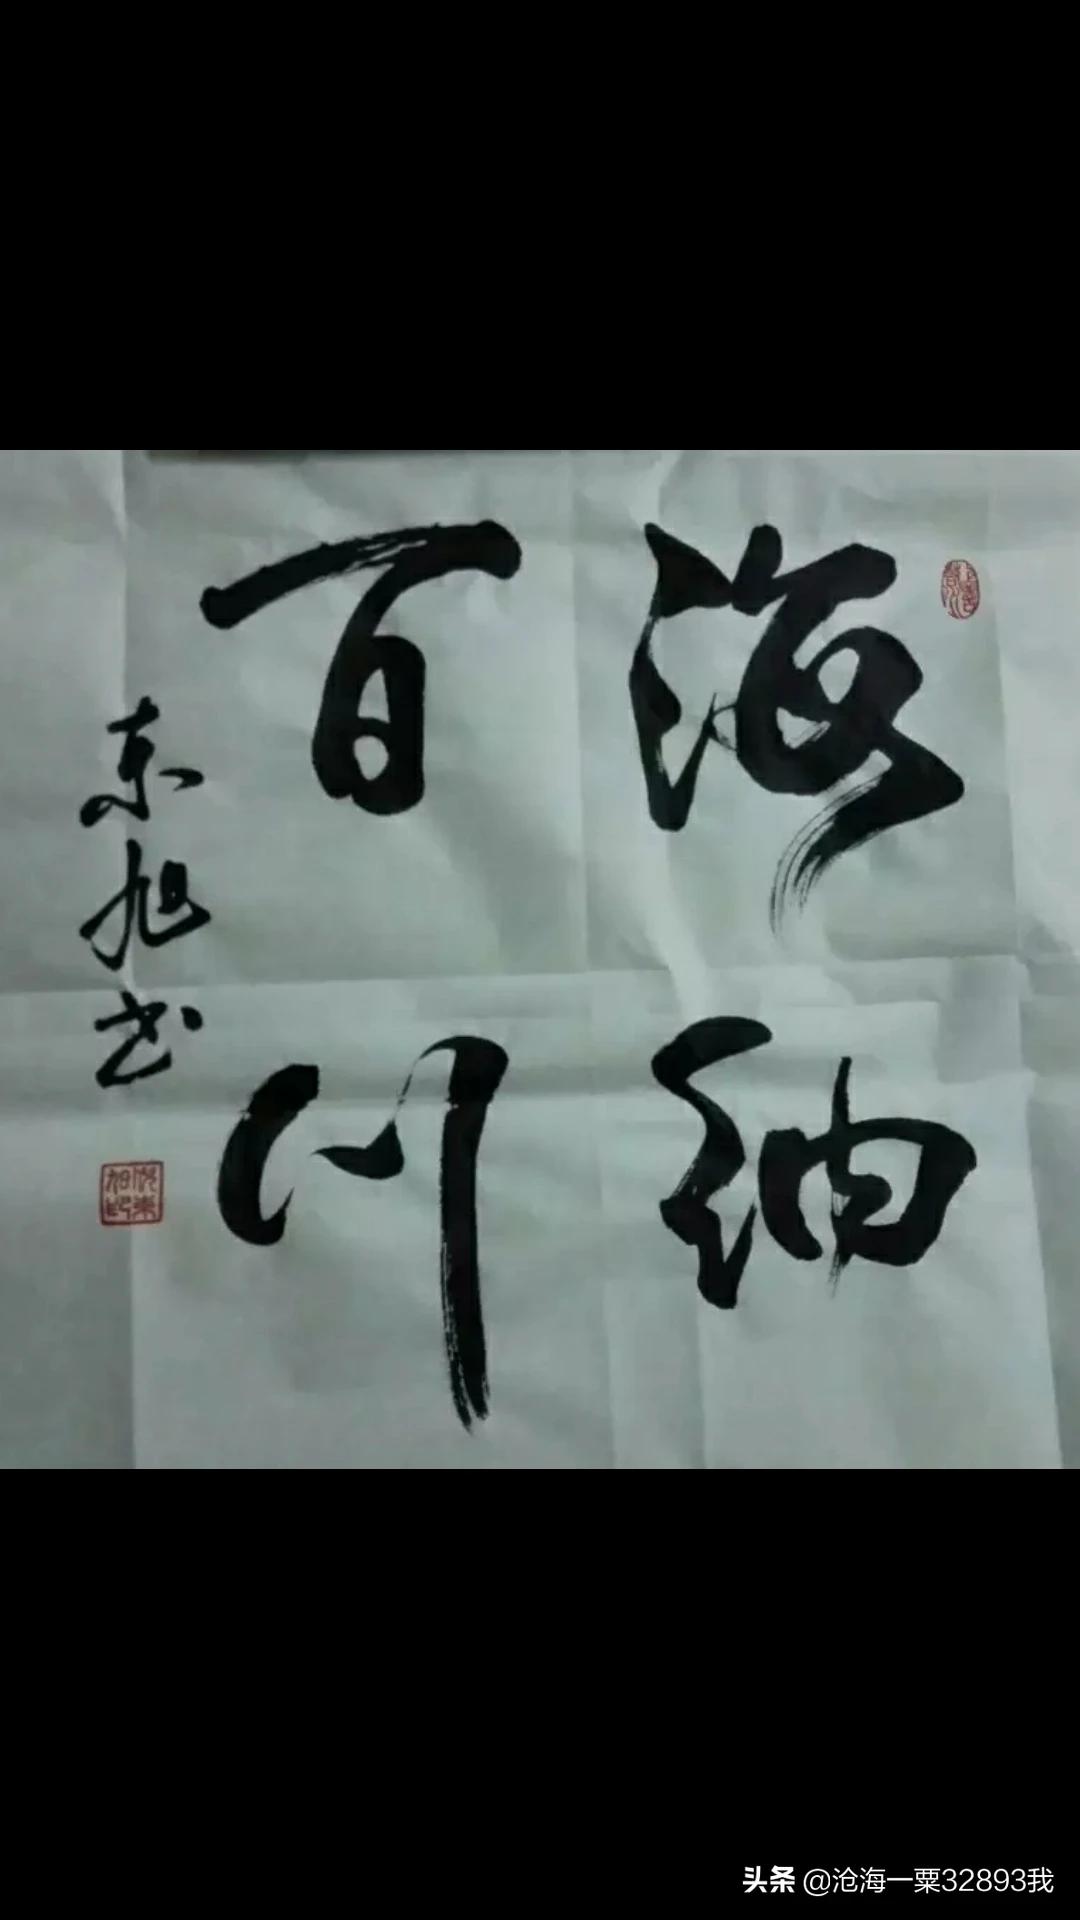 海纳
百川
东旭书
头条 @沧海一粟32893我